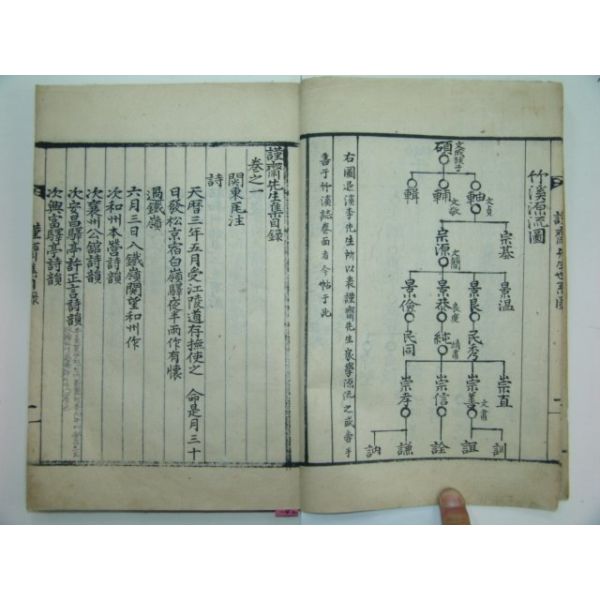 竹溪源流圖
碩 文成從子
軸 文貞
輔 文敬
輯
宗基
宗源 文簡
景溫
景良
景恭 良度
景儉
民秀
純 靖肅
民同
崇直
崇善 文肅
崇信
崇孝
訓
誼
詮
謙
訥
右圖退漢李先生所以表謹齋先生家學源流之盛者手
書于竹溪誌卷面者今帖于此
謹齋先生集目錄
卷之一
關東瓦注
詩
天曆三年五月受江陵道存撫使之 命是月三十
日發松京宿白嶺驛夜半雨作有懷
過鐵嶺
六月三日入鐵嶺關望和州作
次和州本營詩韻
次襄州公館詩韻
次安昌驛亭許正言詩韻
次興富驛亭詩韻